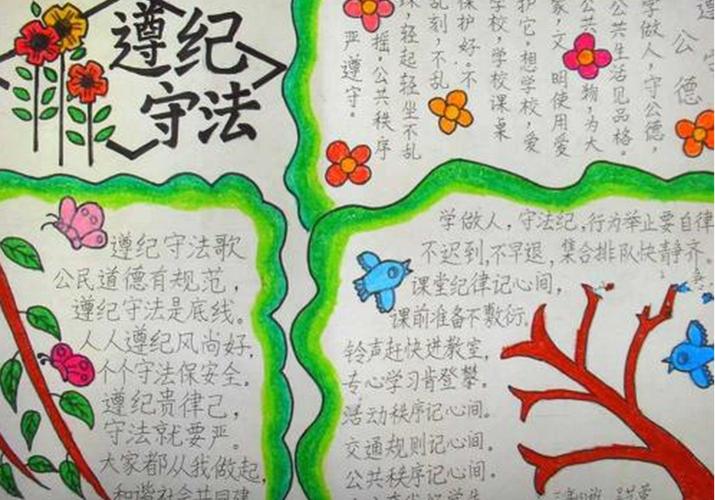 遵纪
守法
遵守
公德
学做人,守公德,
公共生活见品格。
公共物,为大
家,文明使用爱
护它。想学校,爱
学校,学校课桌
保护好。不
乱刻,不乱
轻起轻坐不乱
摇,公共秩序
严遵守。
遵纪守法歌
公民道德有规范,
遵纪守法是底线。
人人遵纪风尚好,
个个守法保安全。
遵纪贵律己,
守法就要严。
大家都从我做起,
和谐社会共同建
学做人,守法纪,行为举止要自律
不迟到,不早退,集合排队快静齐。
课堂纪律记心间,
课前准备不敷衍。
铃声赶快进教室,
专心学习肯登攀。
活动秩序记心间。
交通规则记心间。
公共秩序记心间。